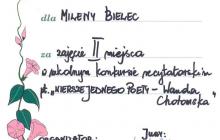 dla MILENY BIELEC
za zajęcie II miejsca
w szkolnym konkursie recytatorskim
pt. „WIERSZE JEDNEGO POETY - Wanda
Chotomska"
ORGANIZATOR: Jury: